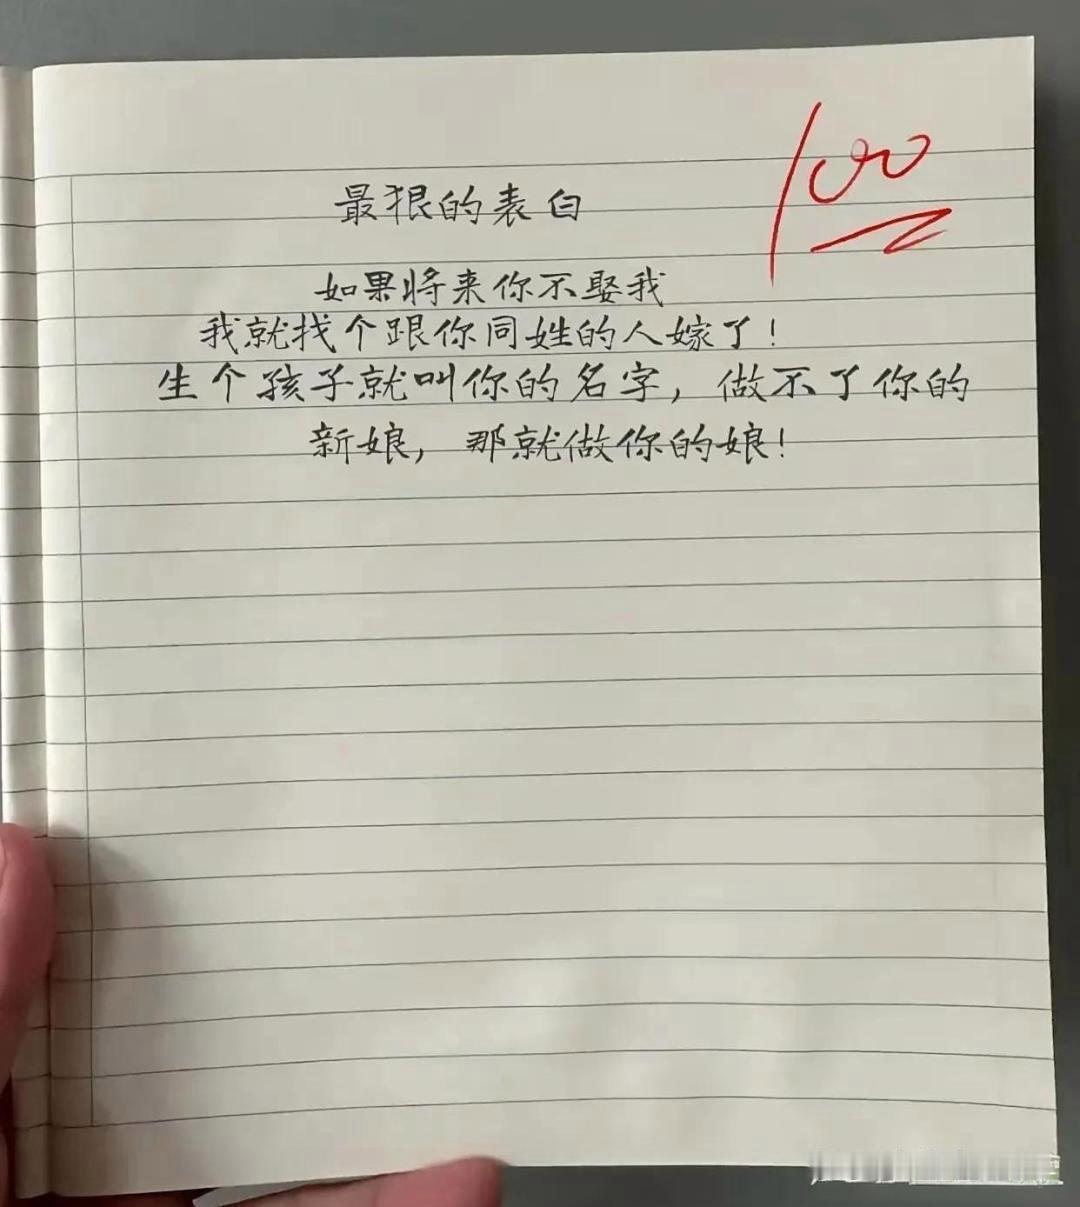 100
最狠的表白
如果将来你不娶我
我就找个跟你同姓的人嫁了!
生个孩子就叫你的名字,做不了你的
新娘,那就做你的娘!